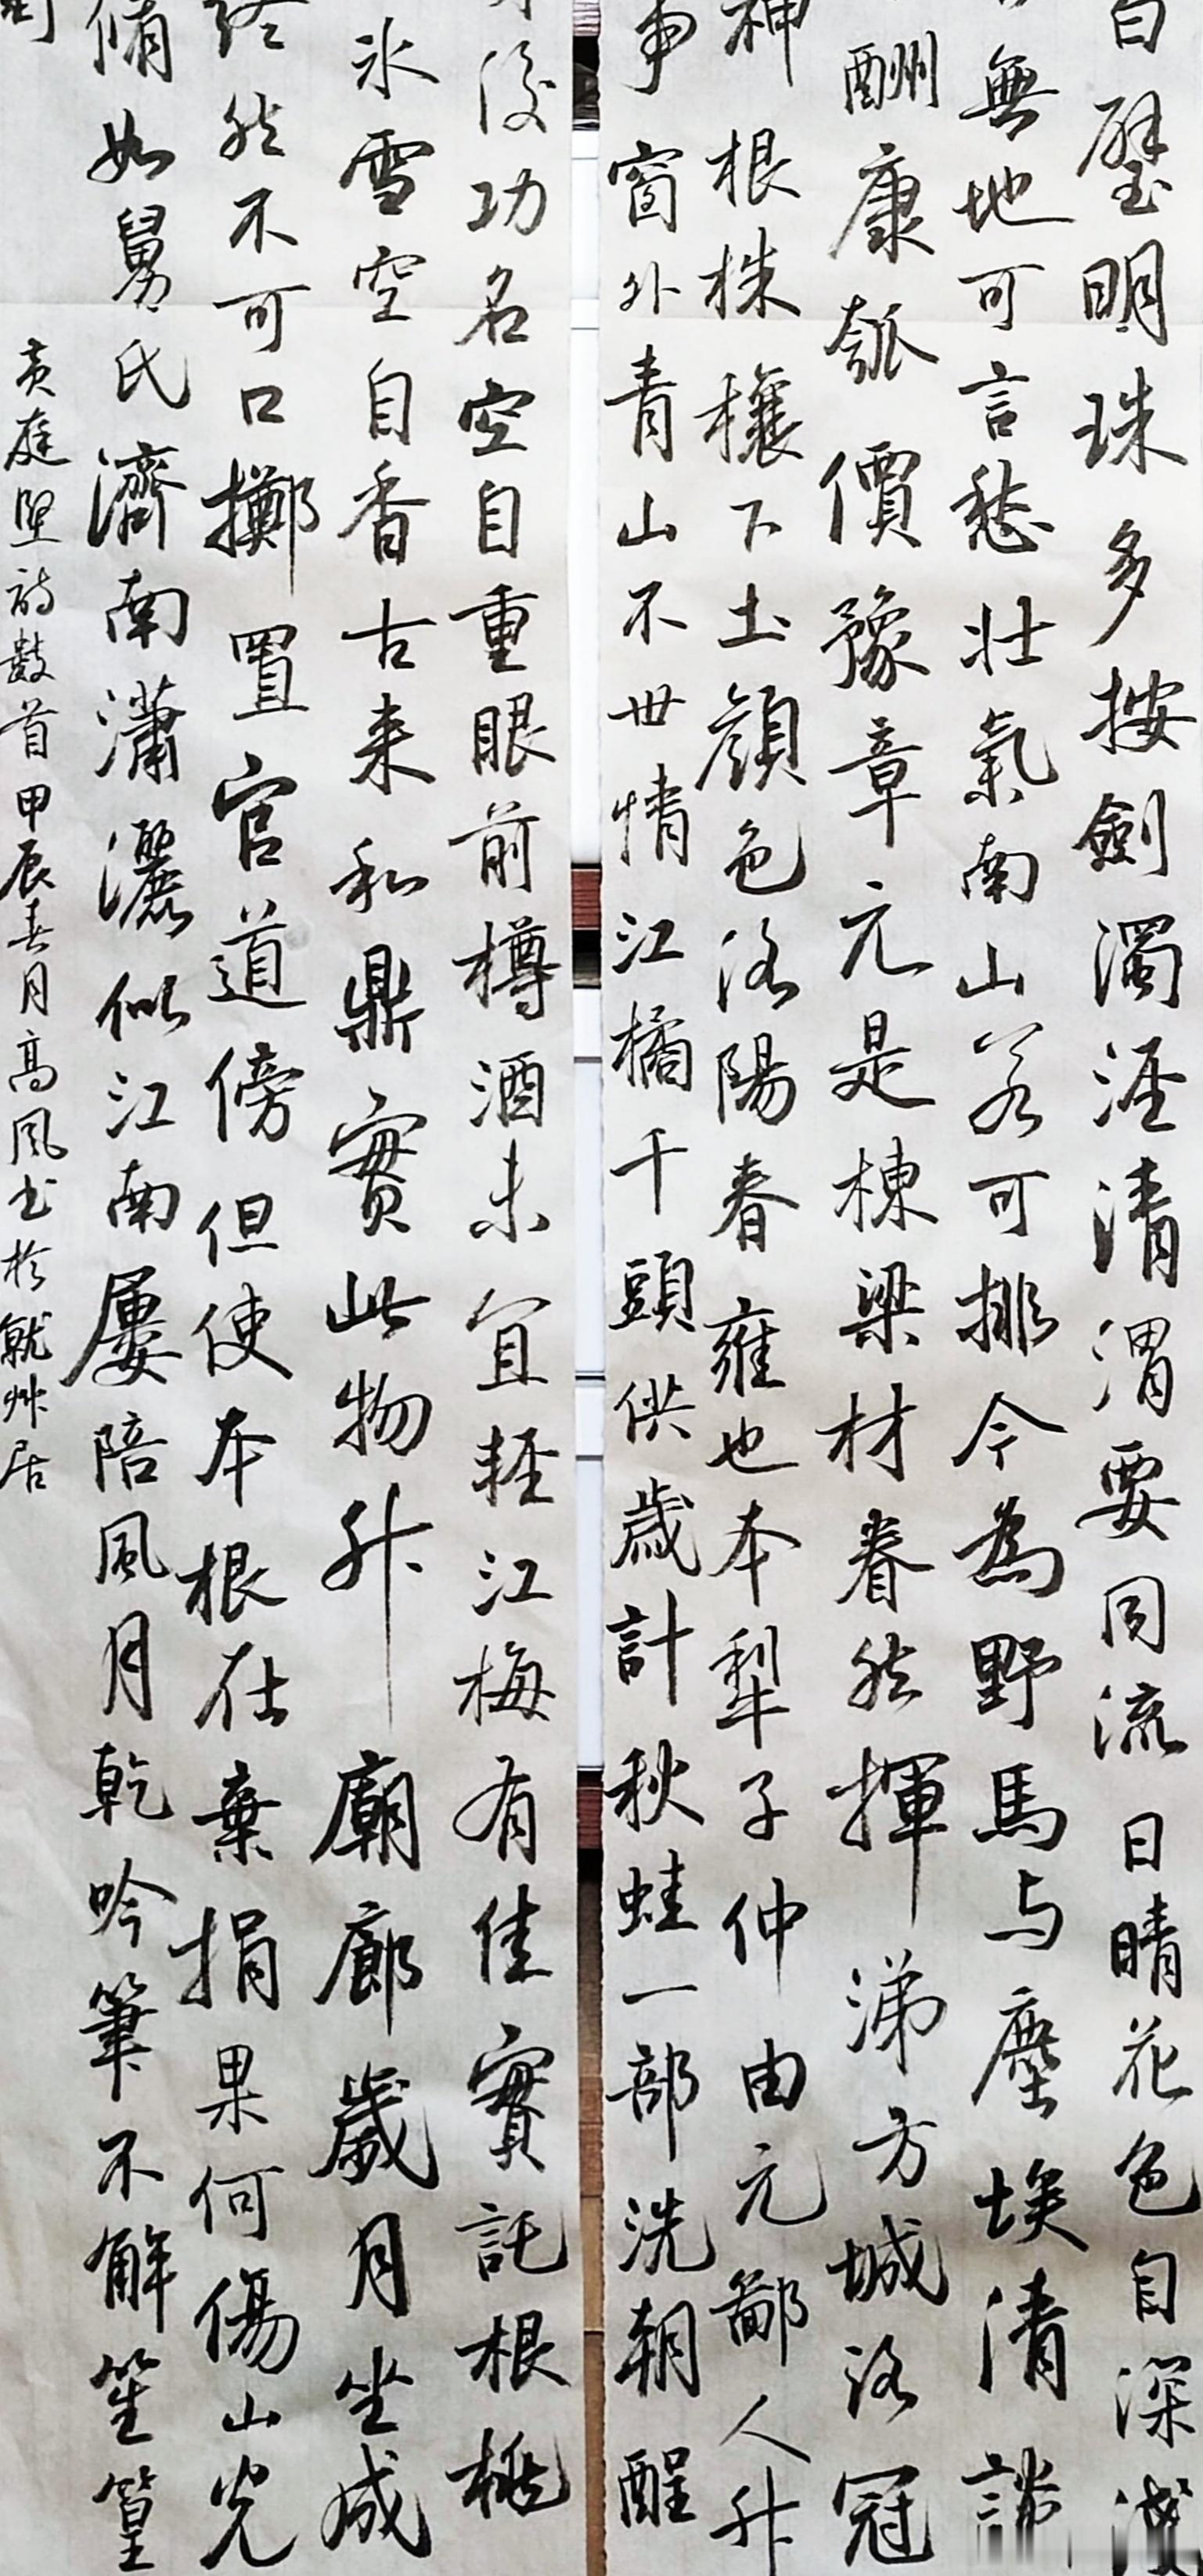 白璧明珠多按劍濁涇清渭要同流日晴花色自深淺
無地可言愁壯氣南山若可排今為野馬与塵埃清談
酬康瓠價豫章元是棟梁材眷然揮涕方城路冠
神根株穰下土顏色洛陽春雍也本犁子仲由元鄙人升
事窗外青山不世情江橘千頭供歲計秋蛙一部洗朝酲
後功名空自重眼前樽酒未宜輕江梅有佳實託根桃
冰雪空自香古来和鼎實此物升廟廊歲月坐成
終然不可口擲置官道傍但使本根在棄捐果何傷山光
翛如舅氏濟南瀟灑似江南屢陪風月乾吟筆不解笙簧
黃庭堅詩數首甲辰春月高風书於就艸居